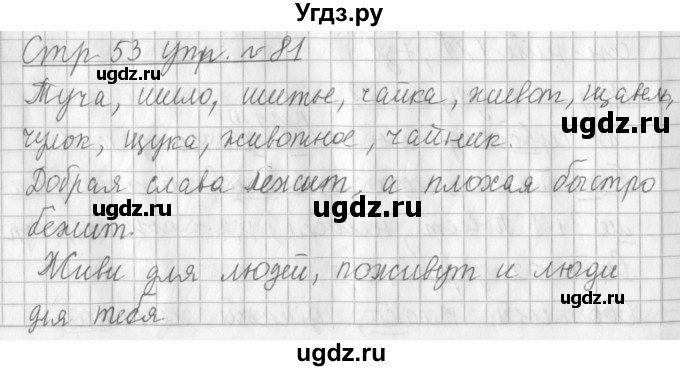 УгдЗ.ру
Стр 53 упр. № 81
Туча, шило, шитье, чайка, живот, щавель,
ugdz.ru
чулок, щука, животное, чайник.
ugdz.ru
Добрая слава лежит, а плохая быстро
ugdz.ru
бежит.
Живи для людей, поживут и люди
ugdz.ru
для тебя
ugdz.ru